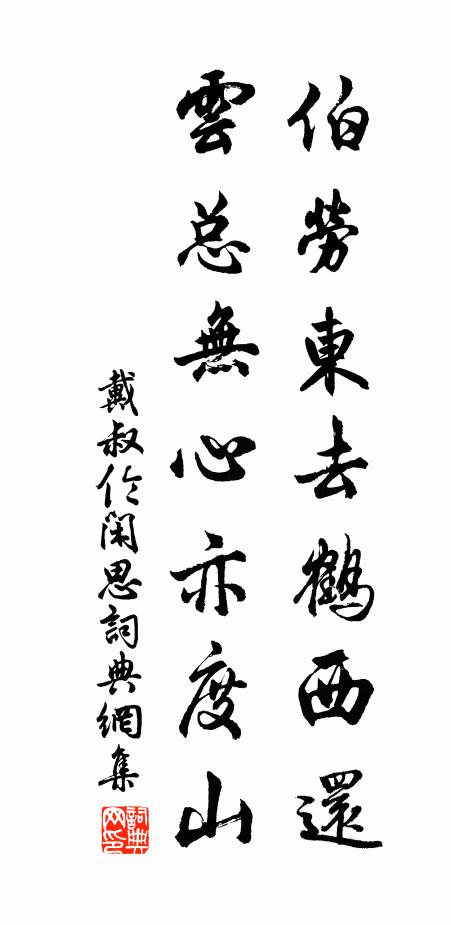 伯勞東去鶴西還
雲总無心亦度山
戴叔伦閑思詞典網集
詞典网印